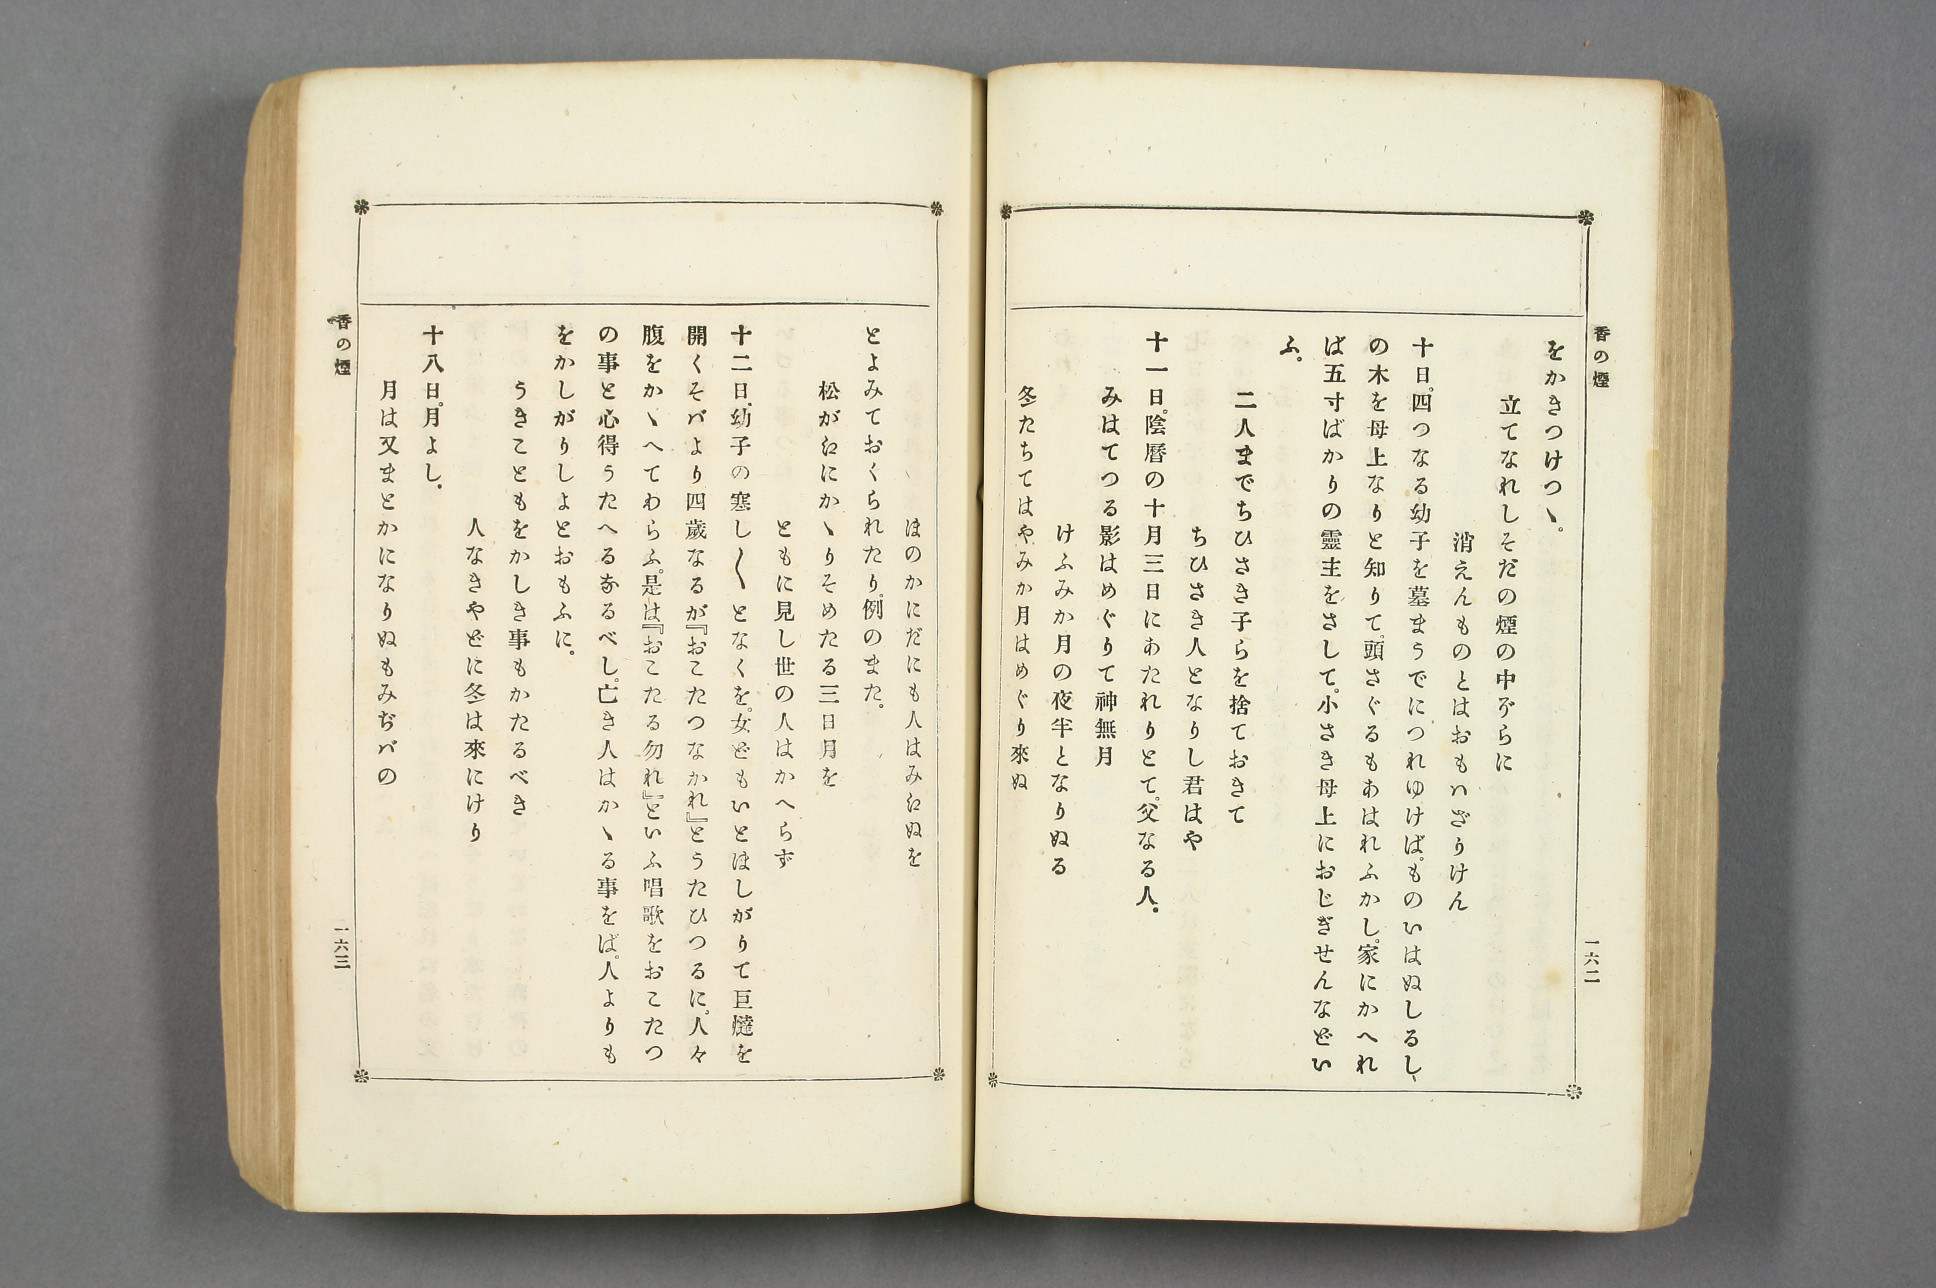 香の煙
一六二
をかきつけつヽ。
立てなれしそだの煙の中ぞらに
消えんものとはおもハざりけん
十日。四つなる幼子を墓まうでにつれゆけば。ものいはぬしるし、
の木を母上なりと知りて。頭さぐるもあはれふかし。家にかへれ
ば五寸ばかりの靈主をさして。小さき母上におじぎせんなどい
ふ。
二人までちひさき子らを捨ておきて
ちひさき人となりし君はや
十一日。陰暦の十月三日にあたれりとて。父なる人。
みはてつる影はめぐりて神無月
けふみか月の夜半となりぬる
冬たちてはやみか月はめぐり來ぬ
ほのかにだにも人はみえぬを
とよみておくられたり。例のまた。
松がえにかヽりそめたる三日月を
ともに見し世の人はかへらず
十二日。幼子の寒し〳〵となくを。女どもいとほしがりて巨燵を
開くそバより四歳なるが『おこたつなかれ』とうたひつるに。人々
腹をかヽへてわらふ。是は『おこたる勿れ』といふ唱歌をおこたつ
の事と心得うたへるなるべし。亡き人はかヽる事をば。人よりも
をかしがりしよとおもふに。
うきこともをかしき事もかたるべき
人なきやどに冬は來にけり
十八日。月よし。
月は又まとかになりぬもみぢバの
香の煙
一六三